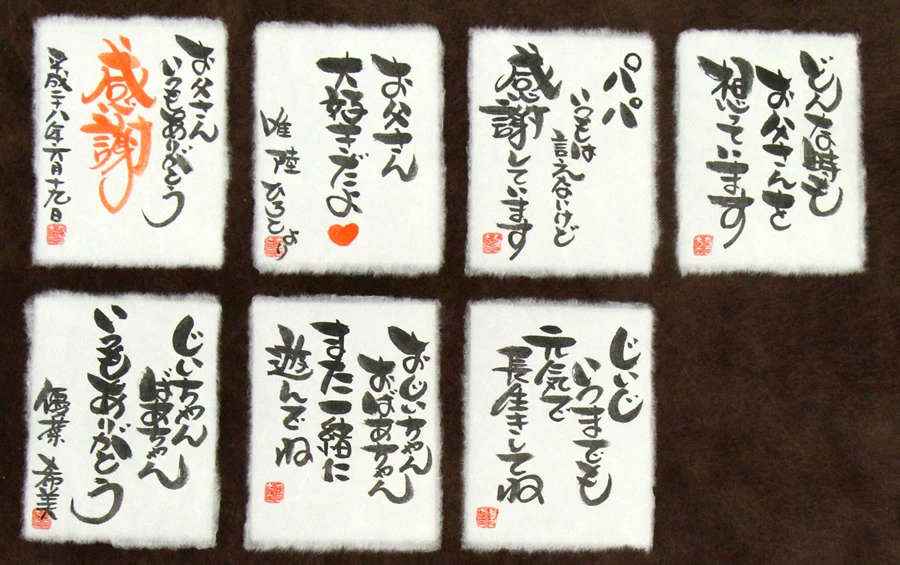 お父さん
いつもありがとう
感謝
平成二十八年六月十九日
お父さん
大好きだよ
唯 陸 ひろとより
パパ
いつもは
言えないけど
感謝しています
どんな時も
お父さんを
想っています
じいちゃん
ばあちゃん
いつもありがとう
優葉 希美
おじいちゃん
おばあちゃん
また一緒に
遊んでね
じいじ
いつまでも
元気で
長生きしてね